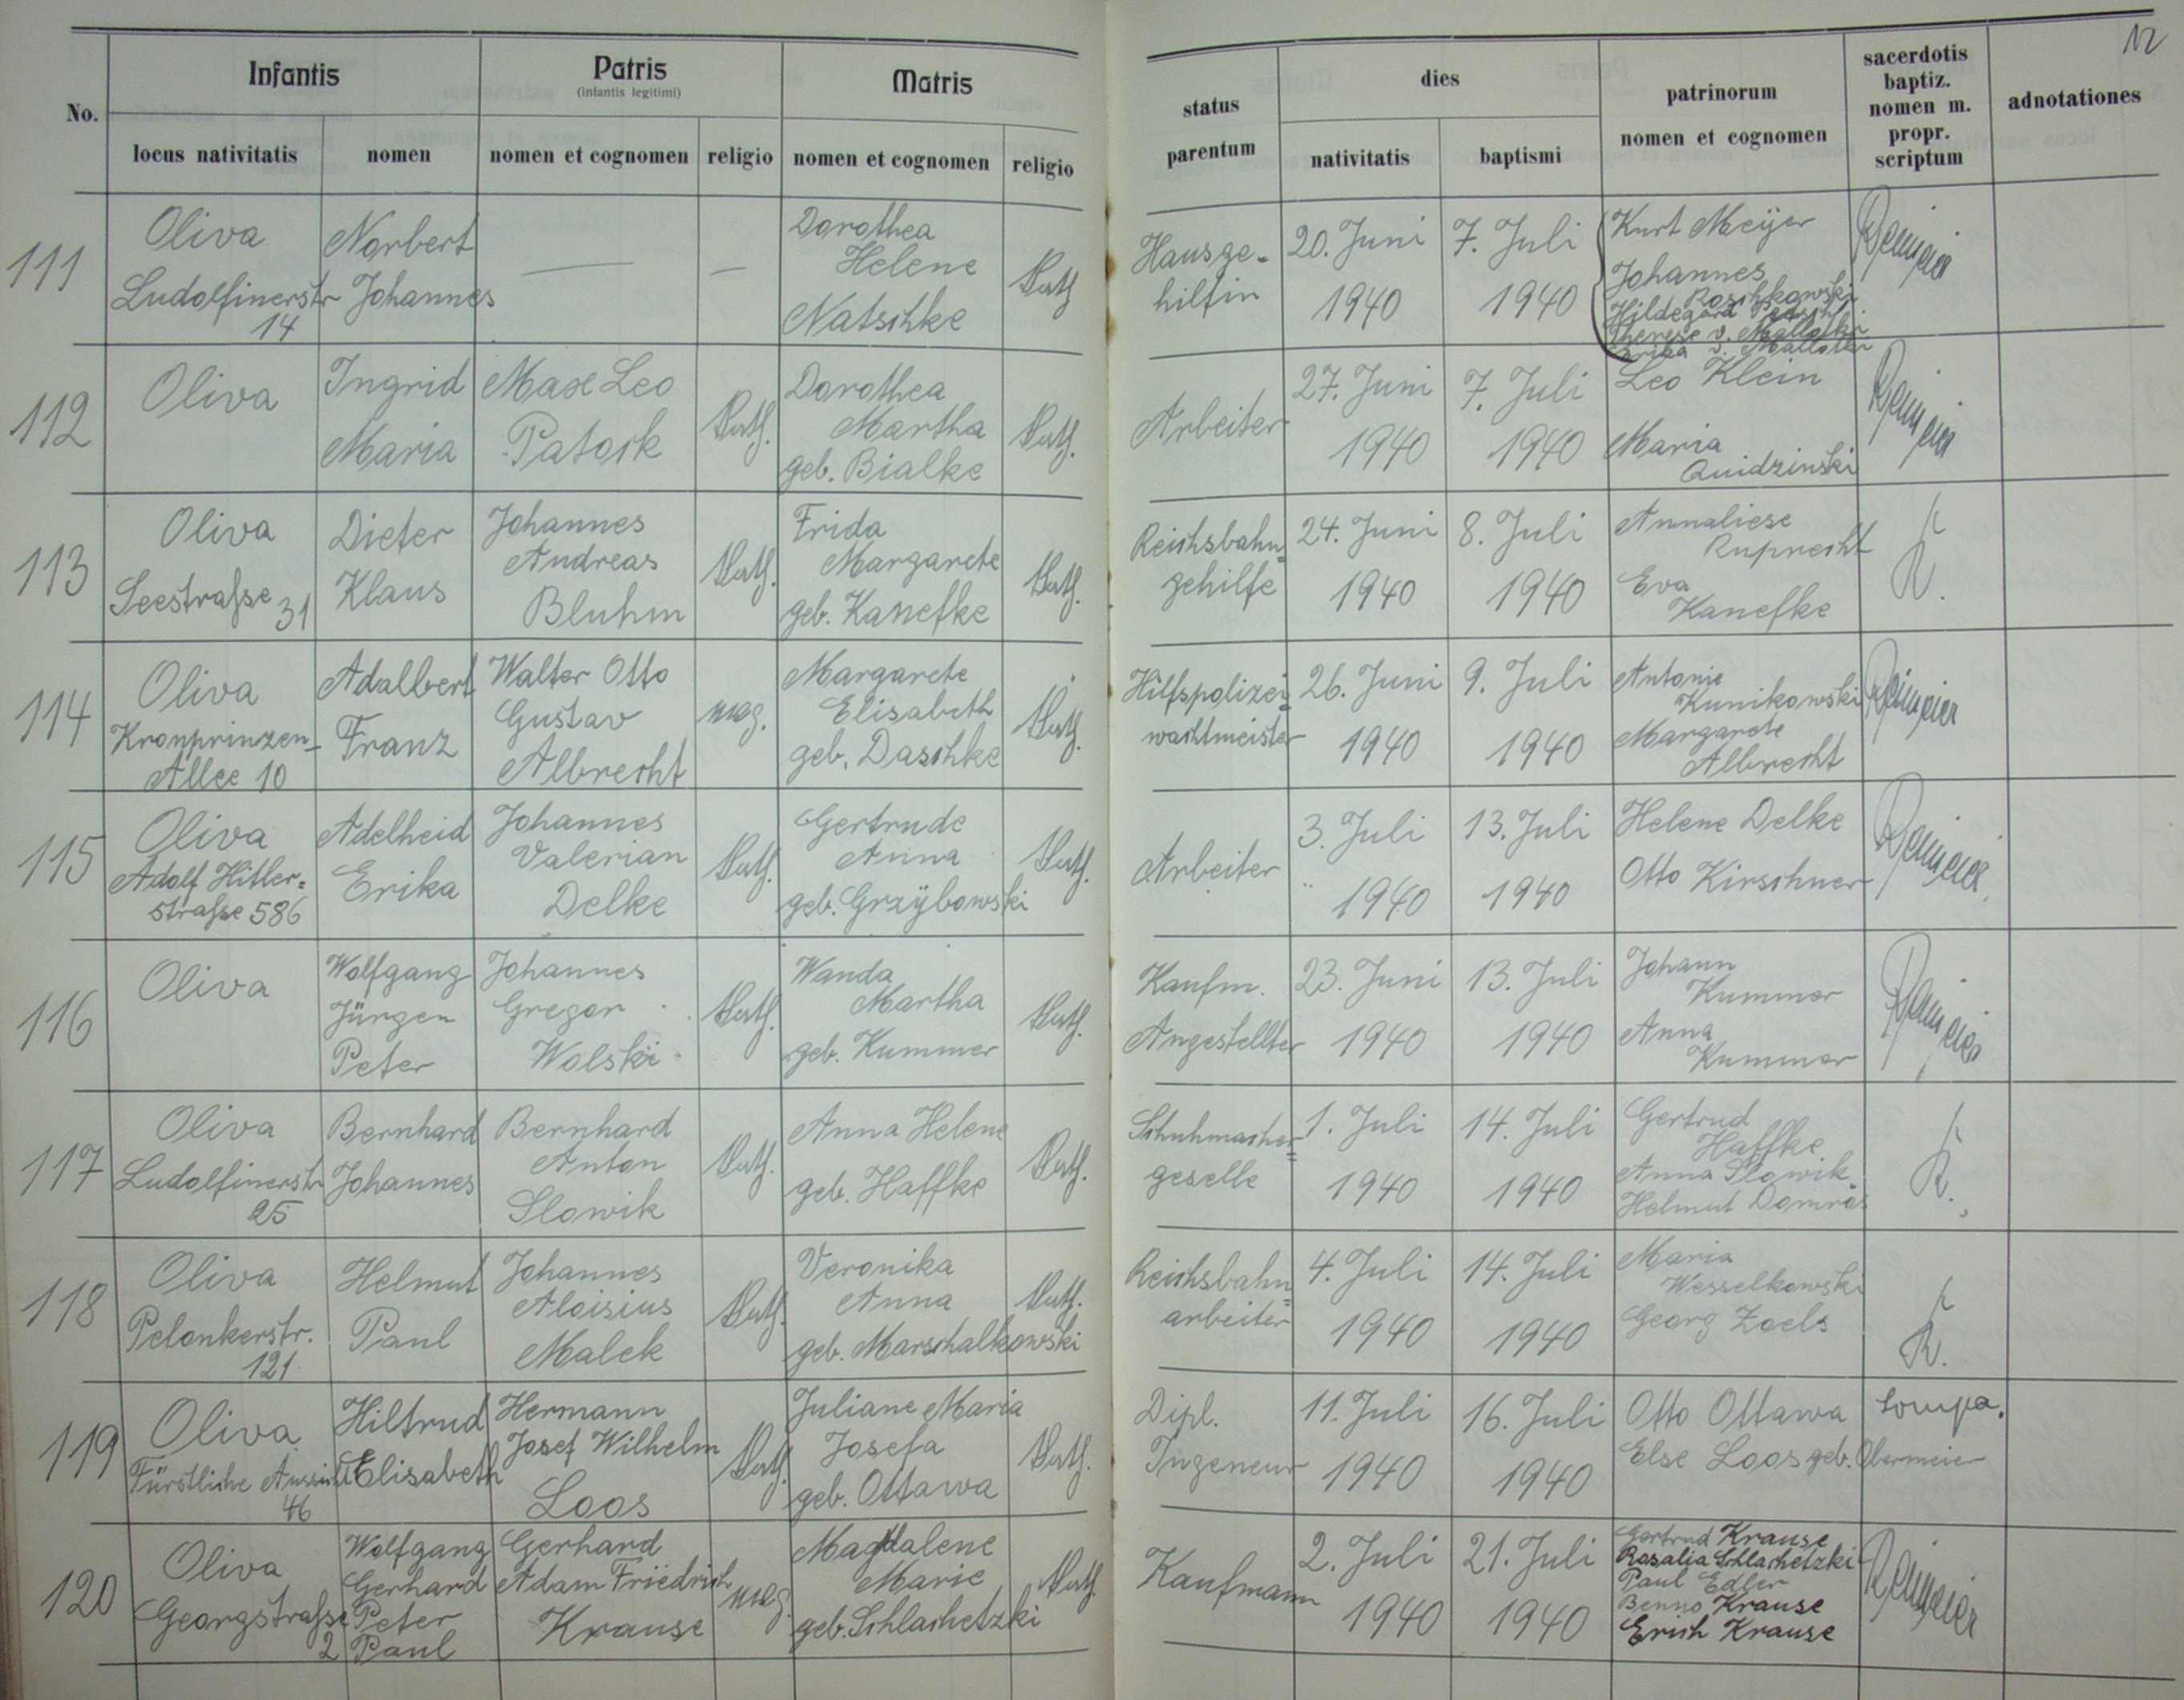 12
Infantis
Patris
(infantis legitimi)
Matris
status parentum
dies
patrinorum nomen et cognomen
sacerdotis baptiz. nomen m. propr. scriptum
adnotationes
No.
locus nativitatis
nomen
nomen et cognomen
religio
nomen et cognomen
religio
nativitatis
baptismi
111
Oliva
Ludolfinerstr
14
Norbert
Johannes
—
—
Dorothea
Helene
Natschke
Kath
Hausge-
hilfin
20. Juni
1940
7. Juli
1940
Kurt Meyer
Johannes
Roschkowski
Hildegard
Therese v. Mallotki
Erika v. Mallotki
112
Oliva
Ingrid
Maria
Max Leo
Patock
Kath.
Dorothea
Martha
geb. Bialke
Kath.
Arbeiter
27. Juni
1940
7. Juli
1940
Leo Klein
Maria
Quidzinski
113
Oliva
Seestraße 31
Dieter
Klaus
Johannes
Andreas
Bluhm
Kath.
Frida
Margarete
geb. Kanefke
Kath.
Reichsbahn=
gehilfe
24. Juni
1940
8. Juli
1940
Annaliese
Ruprecht
Eva
Kanefke
K.
114
Oliva
Kronprinzen-
Allee 10
Adalbert
Franz
Walter Otto
Gustav
Albrecht
Margarete
Elisabeth
geb. Daschke
Kath.
Hilfspolizei=
wachtmeister
26. Juni
1940
9. Juli
1940
Antonie
Kunikowski
Margarete
Albrecht
115
Oliva
Adolf Hitler=
straße 586
Adelheid
Erika
Johannes
Valerian
Delke
Kath.
Gertrude
Anna
geb. Grzÿbowski
Kath.
Arbeiter
3. Juli
1940
13. Juli
1940
Helene Delke
Otto Kirschner
116
Oliva
Wolfgang
Jürgen
Peter
Johannes
Gregor
Wolski
Kath.
Wanda
Martha
geb. Kummer
Kath.
Kaufm.
Angestellter
23. Juni
1940
13. Juli
1940
Johann
Kummer
Anna
Kummer
117
Oliva
Ludolfinerstr
25
Bernhard
Johannes
Bernhard
Anton
Slowik
Kath.
Anna Helene
geb. Haffke
Kath.
Schuhmacher=
geselle
1. Juli
1940
14. Juli
1940
Gertrud
Haffke
Anna Slowik
Helmut Domrös
K.
118
Oliva
Pelonkerstr.
121.
Helmut
Paul
Johannes
Aloisius
Malek
Kath.
Veronika
Anna
geb. Marschalkowski
Kath.
Reichsbahn=
arbeiter
4. Juli
1940
14. Juli
1940
Maria
Wesselkowski
Georg Zoels
K.
119
Oliva
Fürstliche Aussicht
46
Hiltrud
Elisabeth
Hermann
Josef Wilhelm
Loos
Kath.
Juliane Maria
Josefa
geb. Ottawa
Kath.
Dipl.
Ingeneur
11. Juli
1940
16. Juli
1940
Otto Ottawa
Else Loos geb. Obermeier
120
Oliva
Georgstraße
2
Wolfgang
Gerhard
Peter
Paul
Gerhard
Adam Friedrich
Krause
Magdalene
Marie
geb. Schlachetzki
Kath.
Kaufmann
2. Juli
1940
21. Juli
1940
Gertrud Krause
Rosalia Schlachetzki
Paul Edler
Benno Krause
Erich Krause